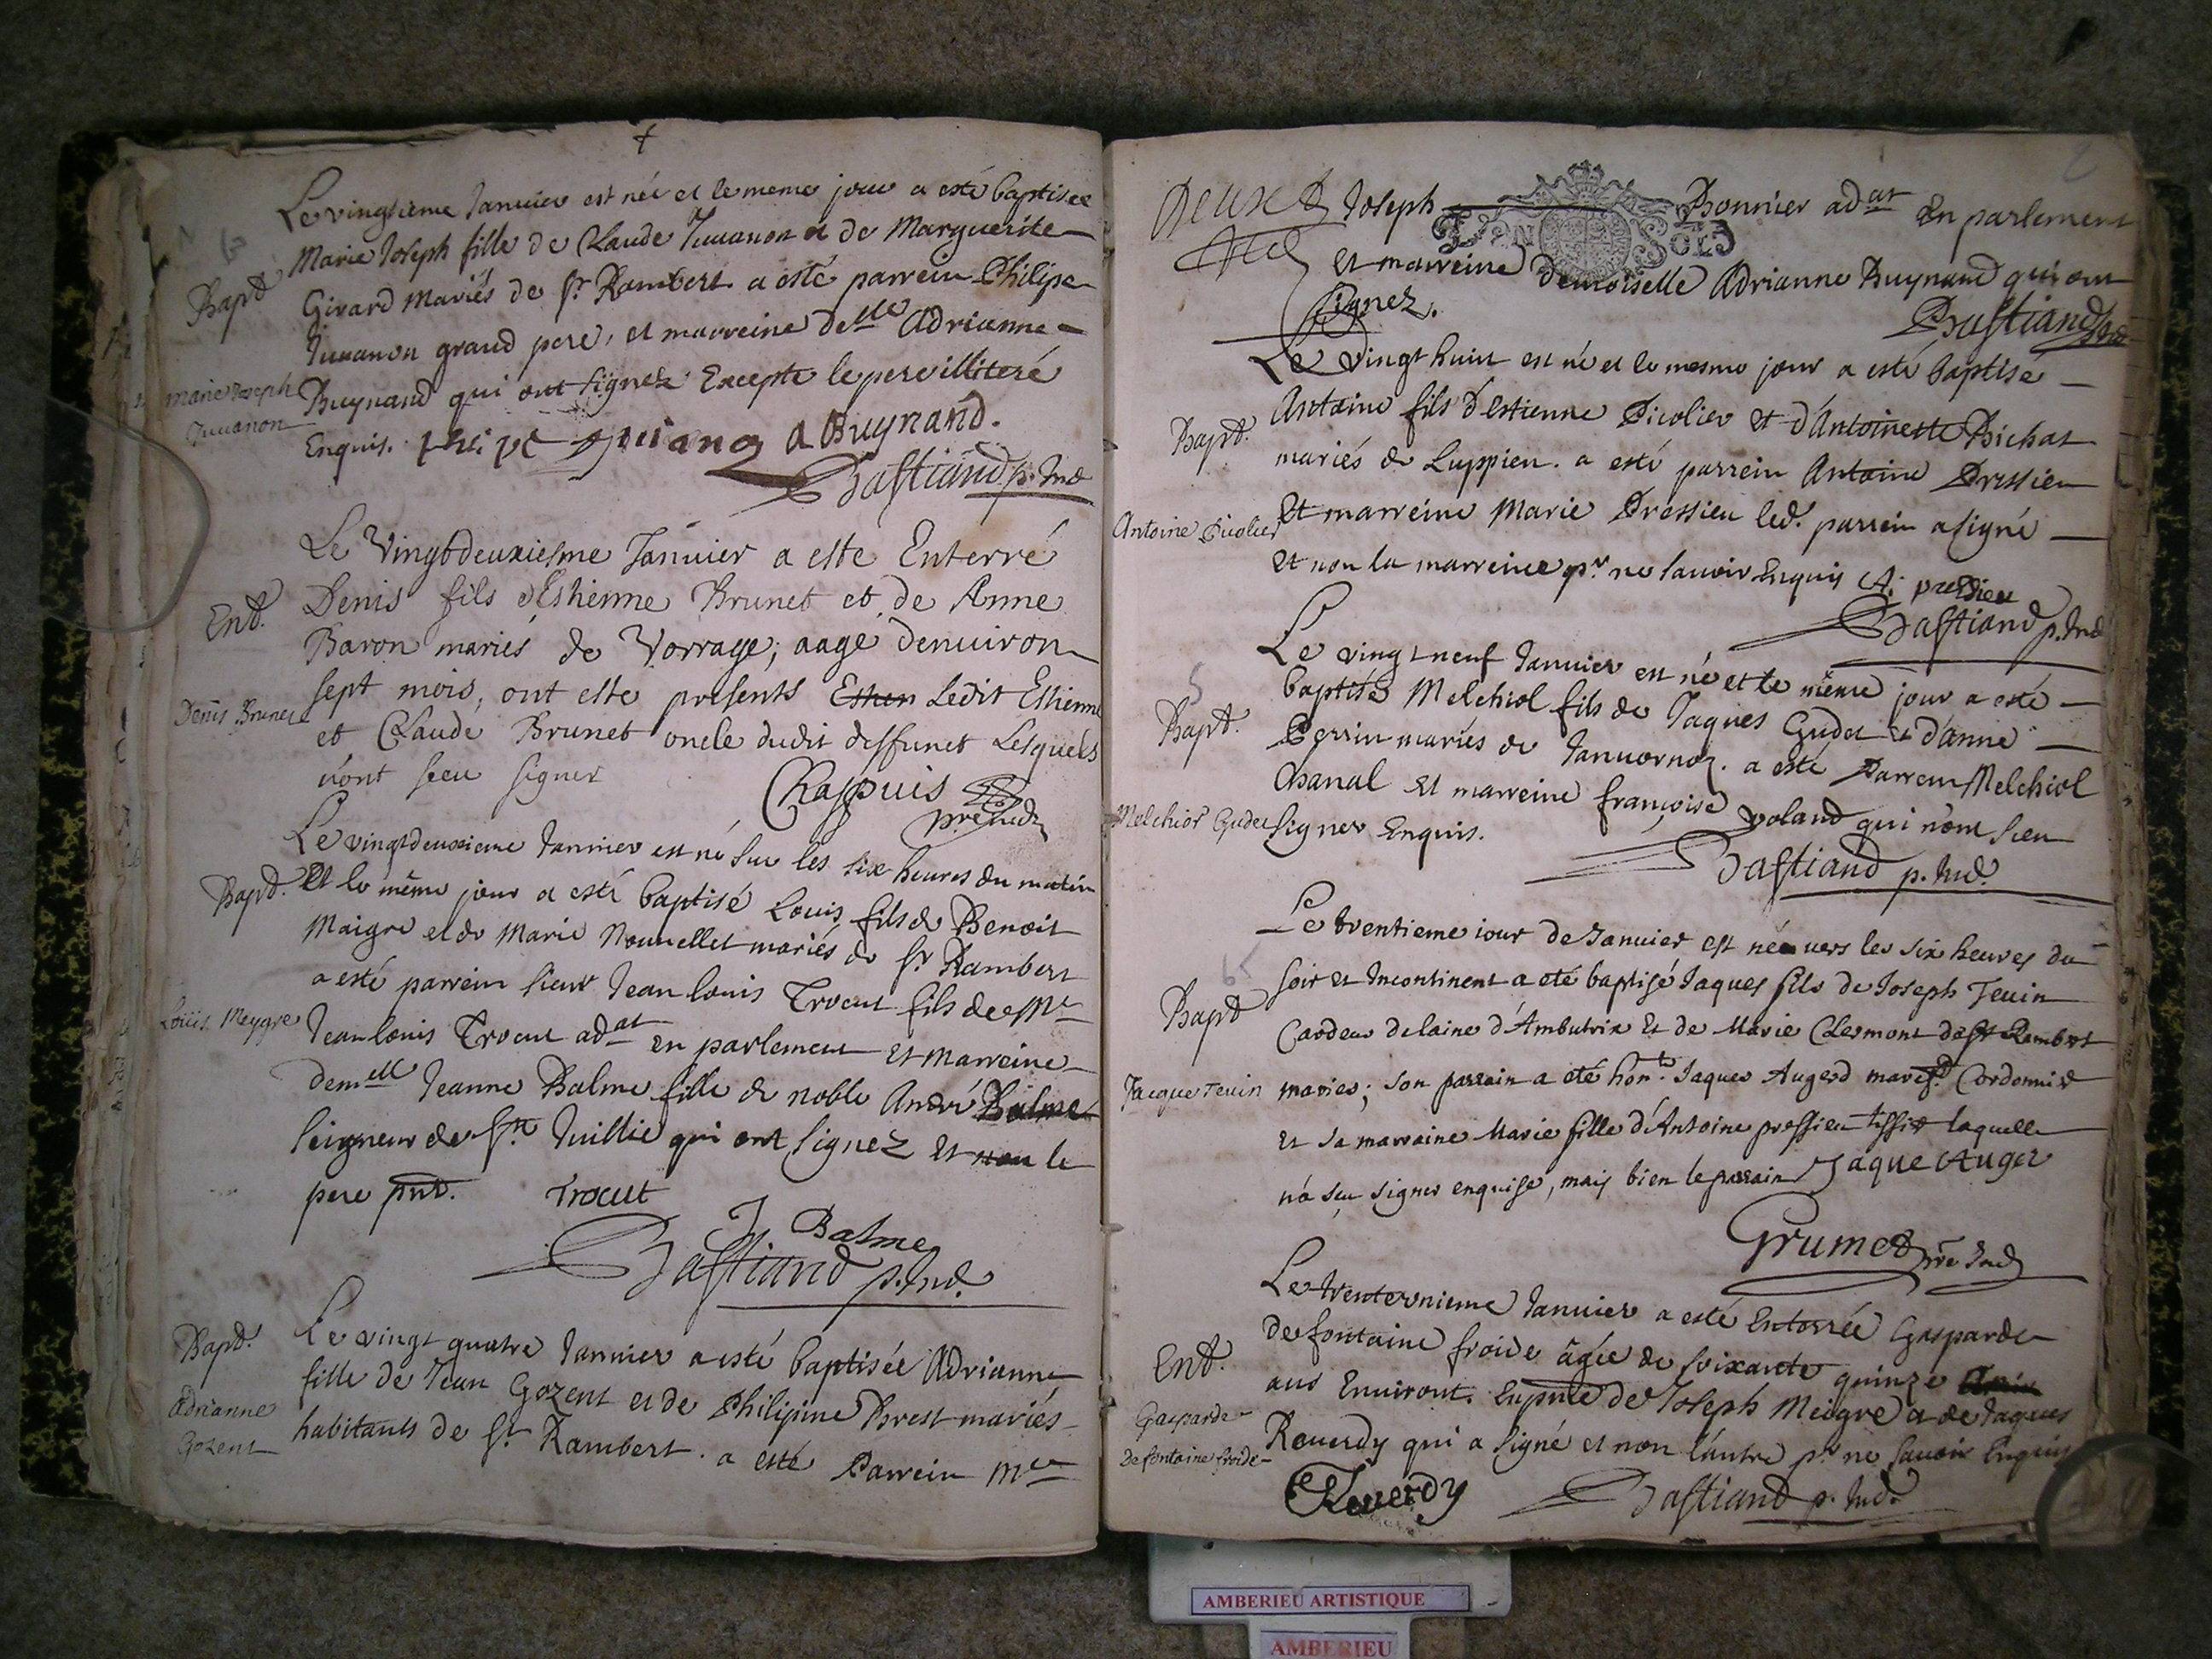 Le vingtieme Janvier est née et le meme jour a esté baptisée
Marie Joseph fille de Claude Juuanon et de Marguerite
Bapt. Girard mariés de St Rambert a esté parrein Philipe
Juuanon grand pere, et marreine delle Adrianne
marie Joseph Juuanon
Buynand qui ont signez Excepte le pere illiteré
Enquis. A Buynand.
Bastiand p. Ind
Le Vingtdeuxiesme Janvier a este Enterré
Ent. Denis fils d'Estienne Brunet et de Anne
Baron mariés de Vorrage; aagé denuiron
Denis Brunet
sept mois, ont este presents Esten Ledit Estienne
et Claude Brunet oncle dudit deffunct Lesquels
n'ont sceu signer
Chappuis
Le vingtdeuxieme Janvier est né sur les six heures du matin
Bapt. Et le même jour a esté baptisé Louis fils de Benoit
Maigre et de Marie Nouuellet mariés de St Rambert
a esté parrein sieur Jean louis Trocut fils de Mr
Louis Meygre
Jean louis Trocut adat en parlement et marreine
demlle Jeanne Balme fille de noble André Balme
seigneur de Ste Juillie qui ont signez et non le
pere pnt. Trocut
J Balme
Bastiand p. Ind.
Bapt. Le vingt quatre Janvier a esté baptisée Adrianne
Adrianne Gozent
fille de Jean Gozent et de Philipine Brest mariés
habitants de St Rambert. a esté Parrein Me
Deux
Joseph Bonnier adat En parlement
et marreine Demoiselle Adrianne Buynand qui ont
signez.
Bastiand
DEN SOLS
Le vingt huit est né et le mesme jour a esté baptisé
Bapt. Antoine fils d'Estienne Picolier et d'Antoinette Bichat
mariés de Luppieu. a esté parrein Antoine Pressieu
Antoine Picolier
et marreine Marie Pressieu led. parrein a signé
et non la marreine pr. ne sauoir Enquis A. pressieu
Bastiand p. Ind
Le vingt neuf Janvier est né et le même jour a esté
5
Bapt. baptisé Melchiol fils de Jaques Gudet et d'anne
Perrin mariés de Januornoz. a esté Parrein Melchiol
Chanal et marreine françoise voland qui n'ont sceu
Melchior Gudet
signer Enquis.
Bastiand p. Ind.
Le trentieme iour de Januier est né vers les six heures du
6
Bapt soir et Incontinent a eté baptisé Jaques fils de Joseph Teuin
Cardeur de laine d'Ambutrix et de Marie Clermont de St Rambert
Jacque Teuin
maries; son parrain a eté hont. Jaques Augerd march. Cordonnier
et sa marraine Marie fille d'Antoine pressieu tissier laquelle
n'a sçu signer enquise, mais bien le parrain Jaque Auger
Grumet
Le trenteunieme Janvier a esté Enterrée Gasparde
Ent. de fontaine froide âgée de soixante quinze
Gasparde De fontaine froide
ans Enuiront. En pnce de Joseph Meigre et de Jaques
Reuerdy qui a signé et non l'autre pr ne sauoir Enquis
Reuerdy Bastiand p. Ind.
AMBERIEU ARTISTIQUE
AMBERIEU